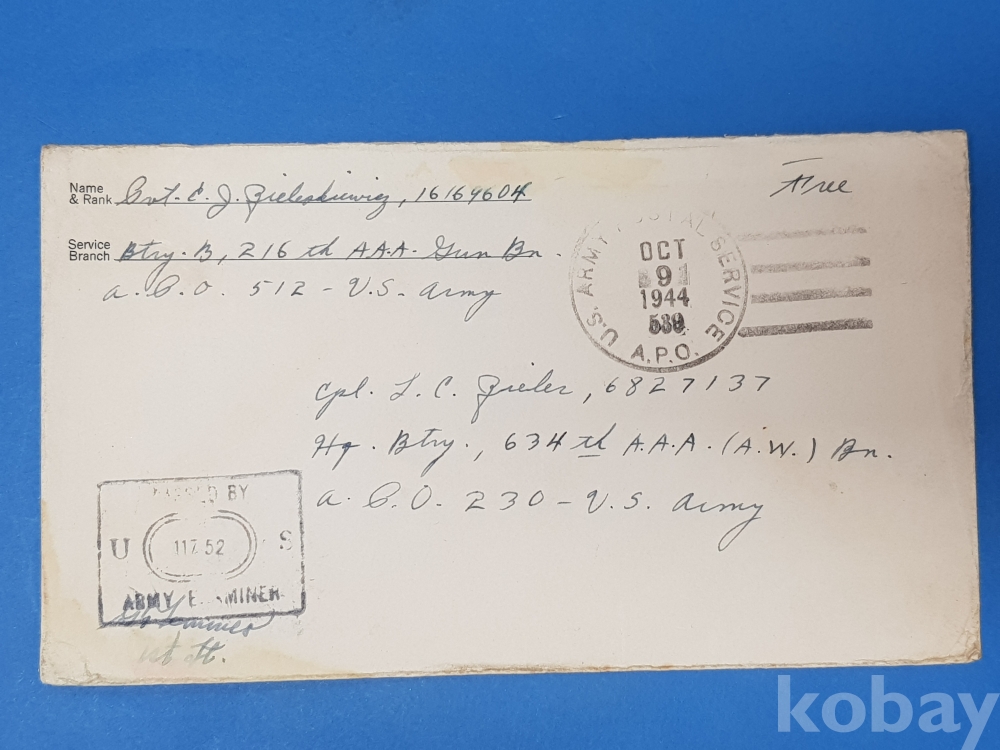 Name & Rank Pvt. E. J. Zieleskiewicz, 16169604
Free
Service Branch Btry. B, 216 th A.A.A. Gun Bn.
A.P.O. 512 - U.S. Army
U.S. ARMY POSTAL SERVICE
OCT
9
1944
A.P.O.
Cpl. L. C. Zieler, 6827137
Hq. Btry., 634 th A.A.A. (A.W.) Bn.
A.P.O. 230 - U.S. Army
PASSED BY
U 11752 S
ARMY EXAMINER
kobay